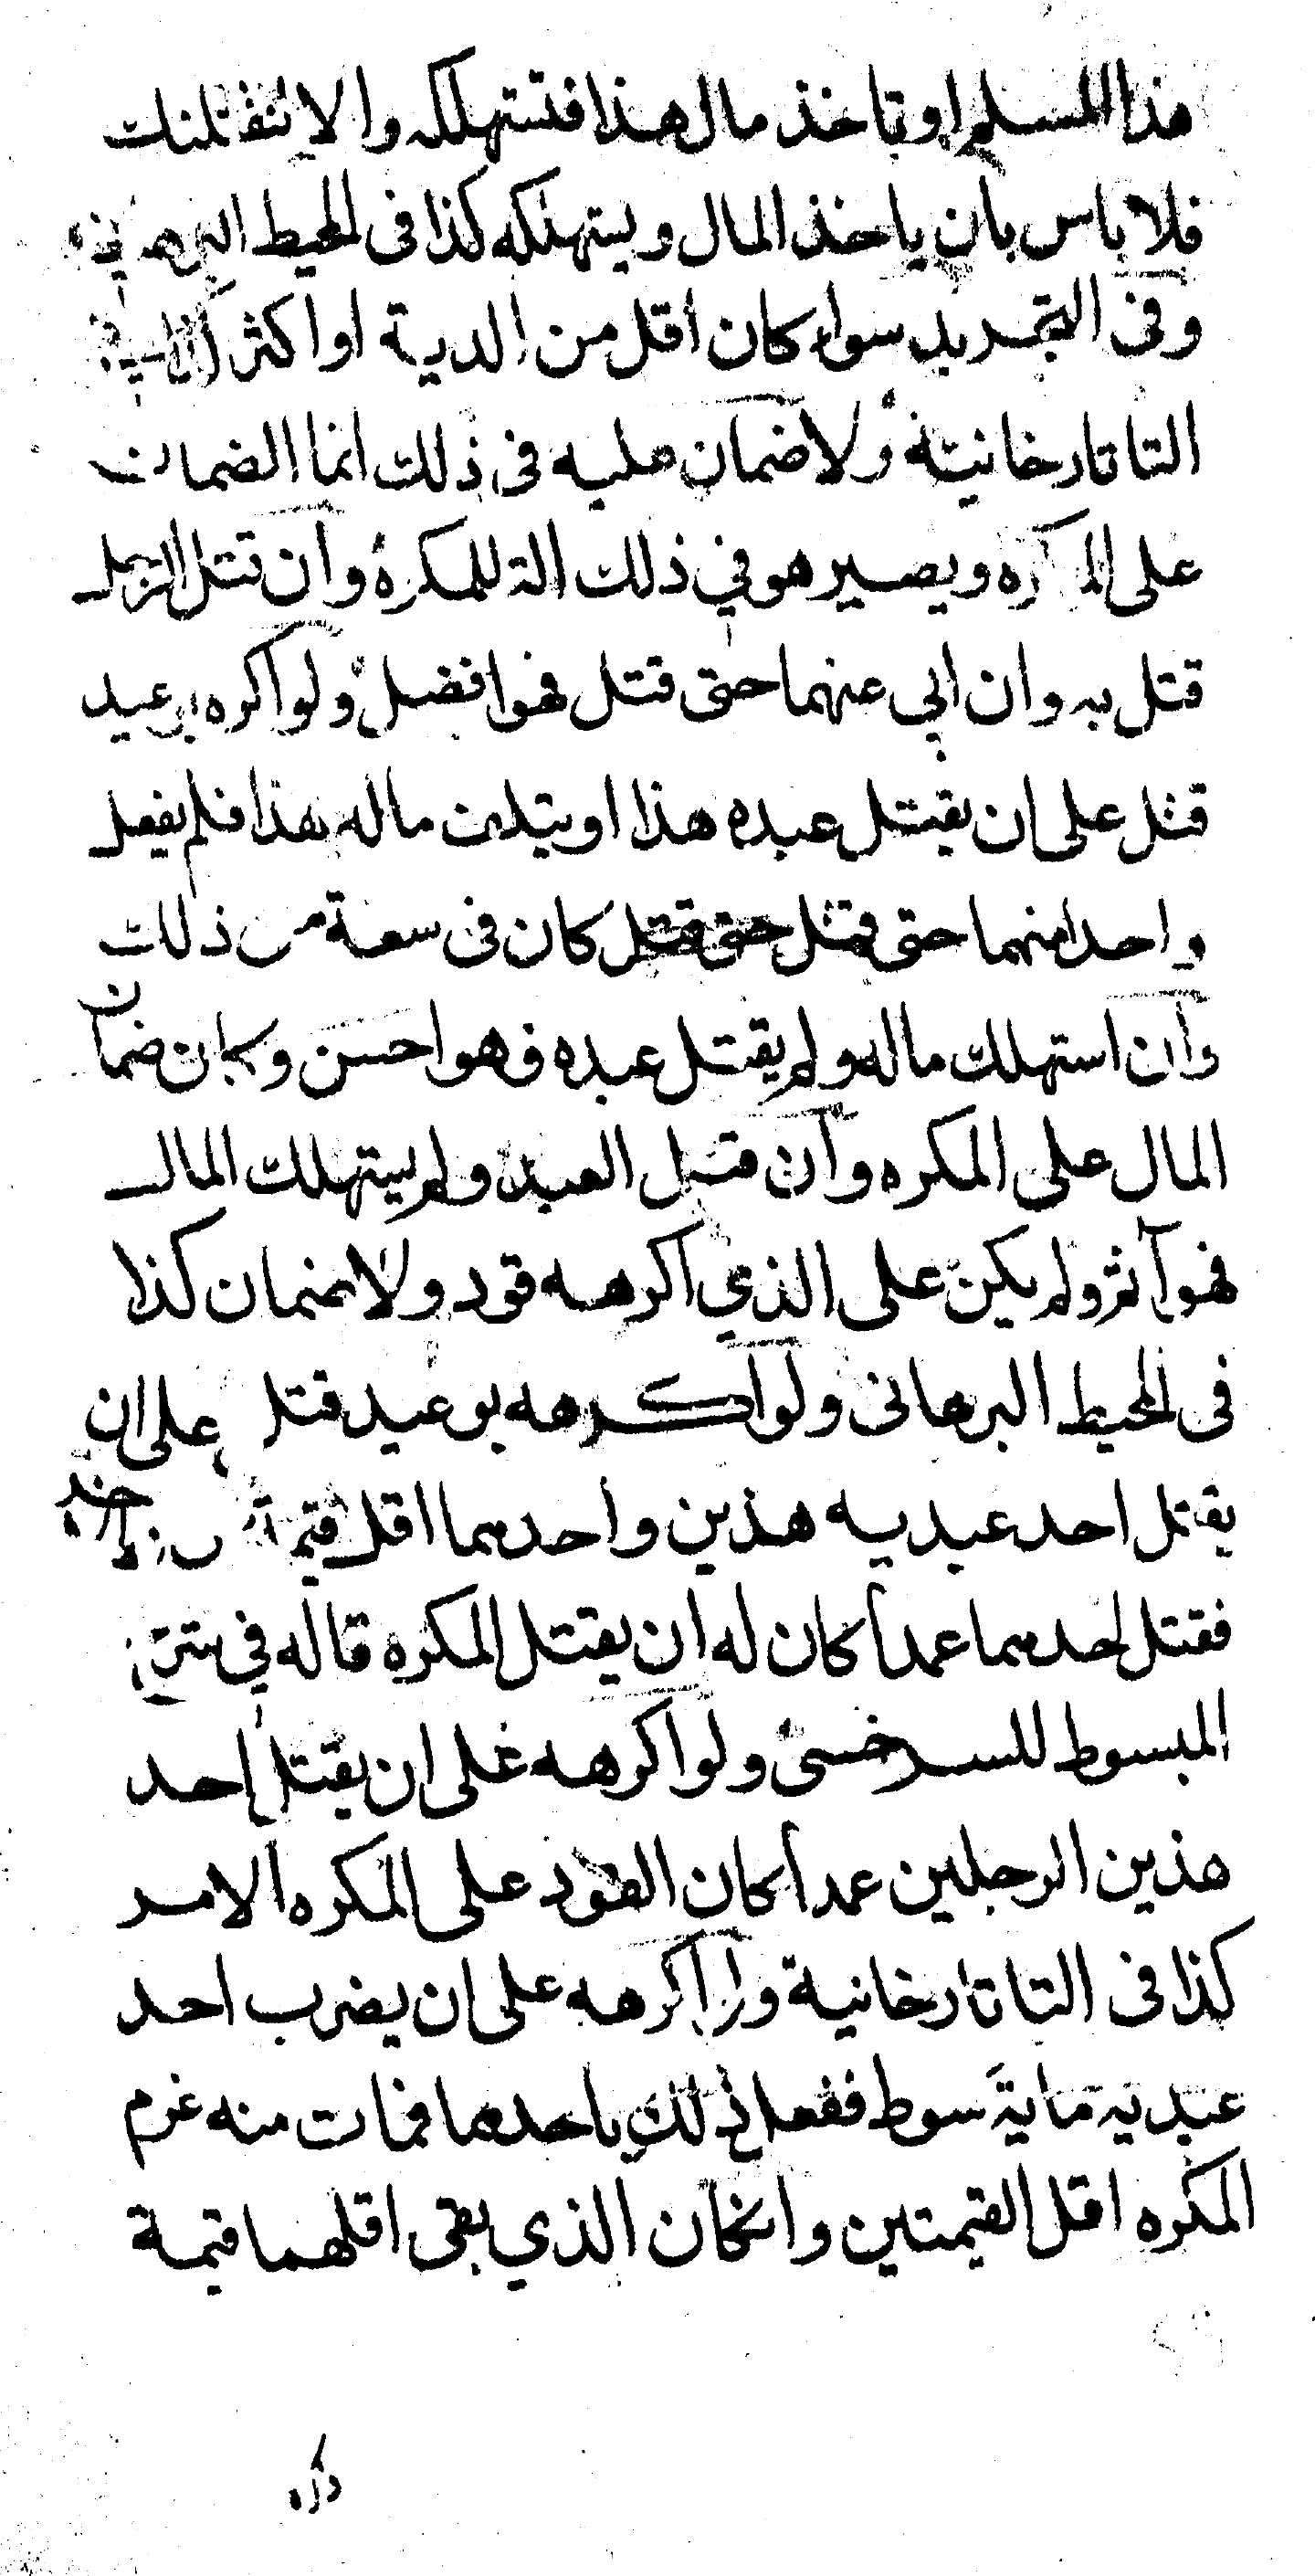 هذا المسلم او تاخذ مال هذا فتستهلكه والا لنقتلنك
فلا باس بان ياخذ المال ويستهلكه كذا فى المحيط البرهانى
وفى التجريد سواء كان اقل من الدية او اكثر
التاتارخانية ولا ضمان عليه فى ذلك انما الضمان
على المكره ويصير هو في ذلك الة للمكره وان قتل الرجل
قتل به وان ابي عنهما حتى قتل فهو افضل ولو اكره بوعيد
قتل على ان يقتل عبده هذا او يتلف ماله هذا فلم يفعل
واحدا منهما حتى قتل حتى قتل كان فى سعة من ذلك
وان استهلك ماله ولم يقتل عبده فهو احسن وكان ضمان
المال على المكره وان قتل العبد ولم يستهلك المال
فهو آثر ولم يكن على الذي اكرهه قود ولا ضمان كذا
فى المحيط البرهانى ولو اكرهه بوعيد قتل على ان
يقتل احد عبديه هذين واحدهما اقل قيمة من الاخر
فقتل احدهما عمدا كان له ان يقتل المكره قاله في
المبسوط للسرخسى ولو اكرهه على ان يقتل احد
هذين الرجلين عمدا كان القود على المكره الامر
كذا فى التاتارخانية وان اكرهه على ان يضرب احد
عبديه ماية سوط ففعل ذلك باحدهما فمات منه غرم
المكره اقل القيمتين وانكان الذي بقى اقلهما قيمة